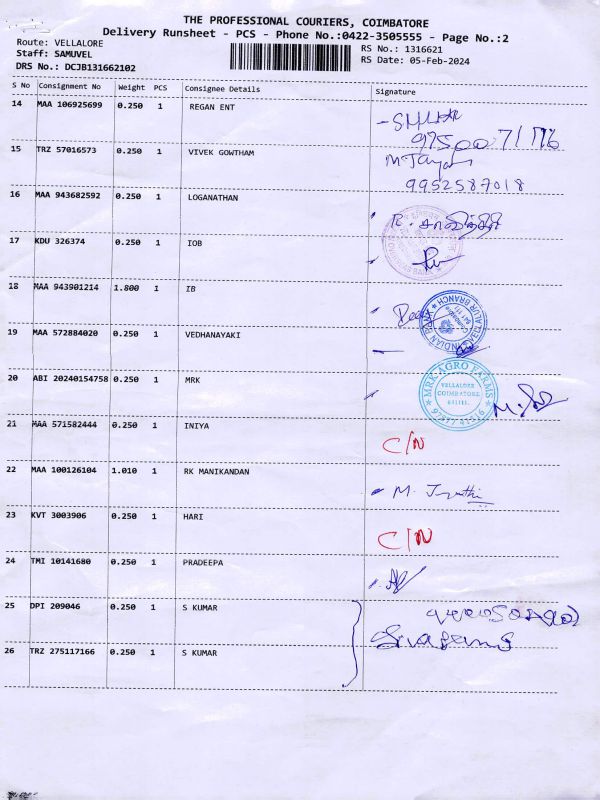 THE PROFESSIONAL COURIERS, COIMBATORE
Delivery Runsheet - PCS - Phone No.:0422-3505555 - Page No.:2
Route: VELLALORE
Staff: SAMUVEL
DRS No.: DCJB131662102
RS No.: 1316621
RS Date: 05-Feb-2024
S No Consignment No Weight PCS Consignee Details Signature
14 MAA 106925699 0.250 1 REGAN ENT
15 TRZ 57016573 0.250 1 VIVEK GOWTHAM
9952587018
16 MAA 943682592 0.250 1 LOGANATHAN
17 KDU 326374 0.250 1 IOB
18 MAA 943901214 1.800 1 IB
19 MAA 572884020 0.250 1 VEDHANAYAKI
20 ABI 20240154758 0.250 1 MRK
MRK AGRO FARMS
VELLALORE
COIMBATORE
21 MAA 571582444 0.250 1 INIYA
C/N
22 MAA 100126104 1.010 1 RK MANIKANDAN
23 KVT 3003906 0.250 1 HARI
C/N
24 TMI 10141680 0.250 1 PRADEEPA
25 DPI 209046 0.250 1 S KUMAR
26 TRZ 275117166 0.250 1 S KUMAR